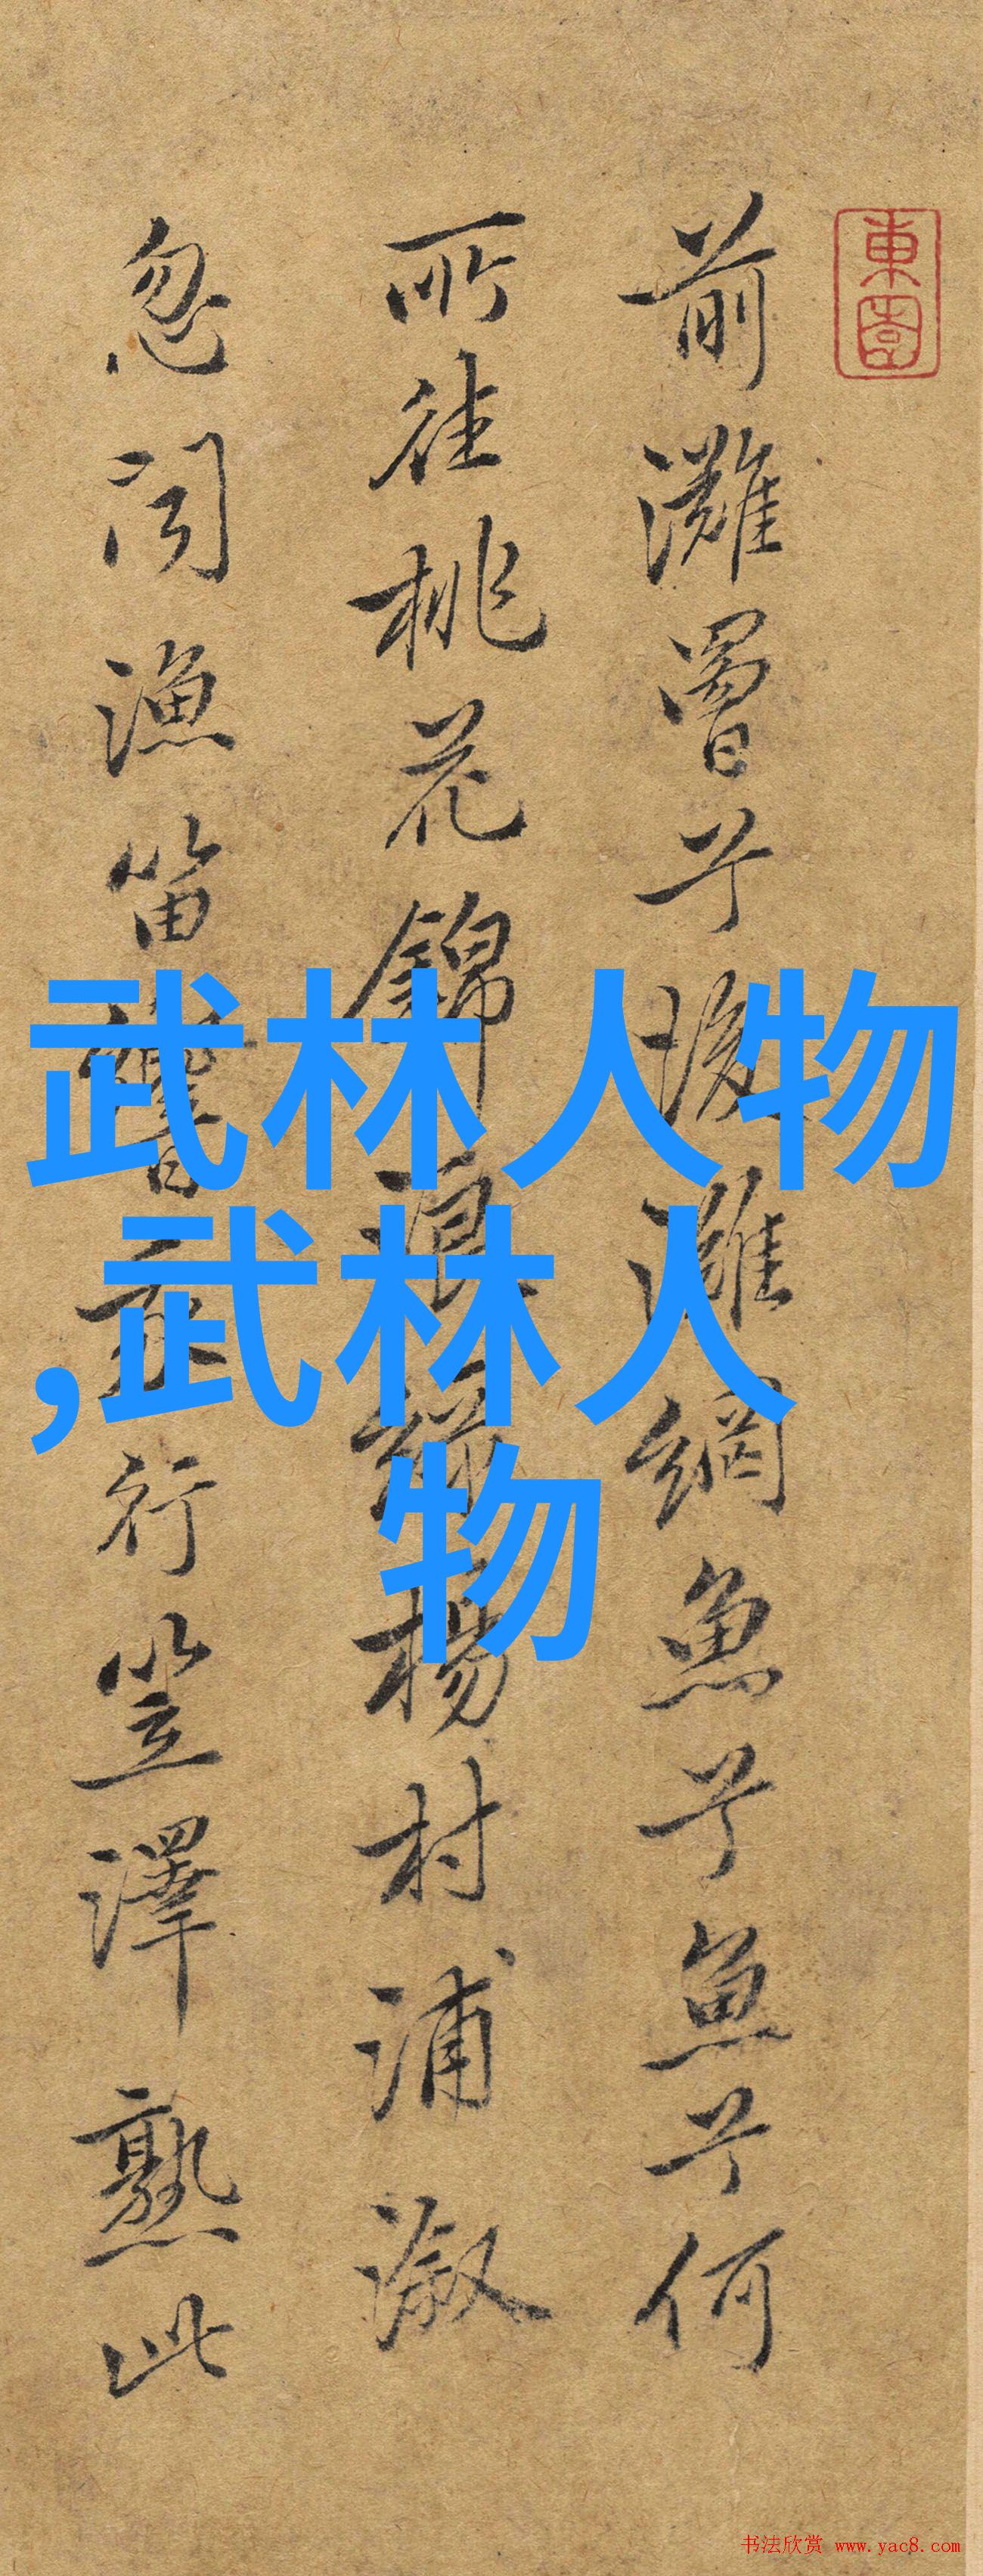 東園
前灘罾兮後灘網魚兮魚兮何
所往桃花錦浪綠楊村浦溆
忽聞漁笛響行笠澤熟此
武林人物
,武林人
物
书法欣赏 www.yac8.com